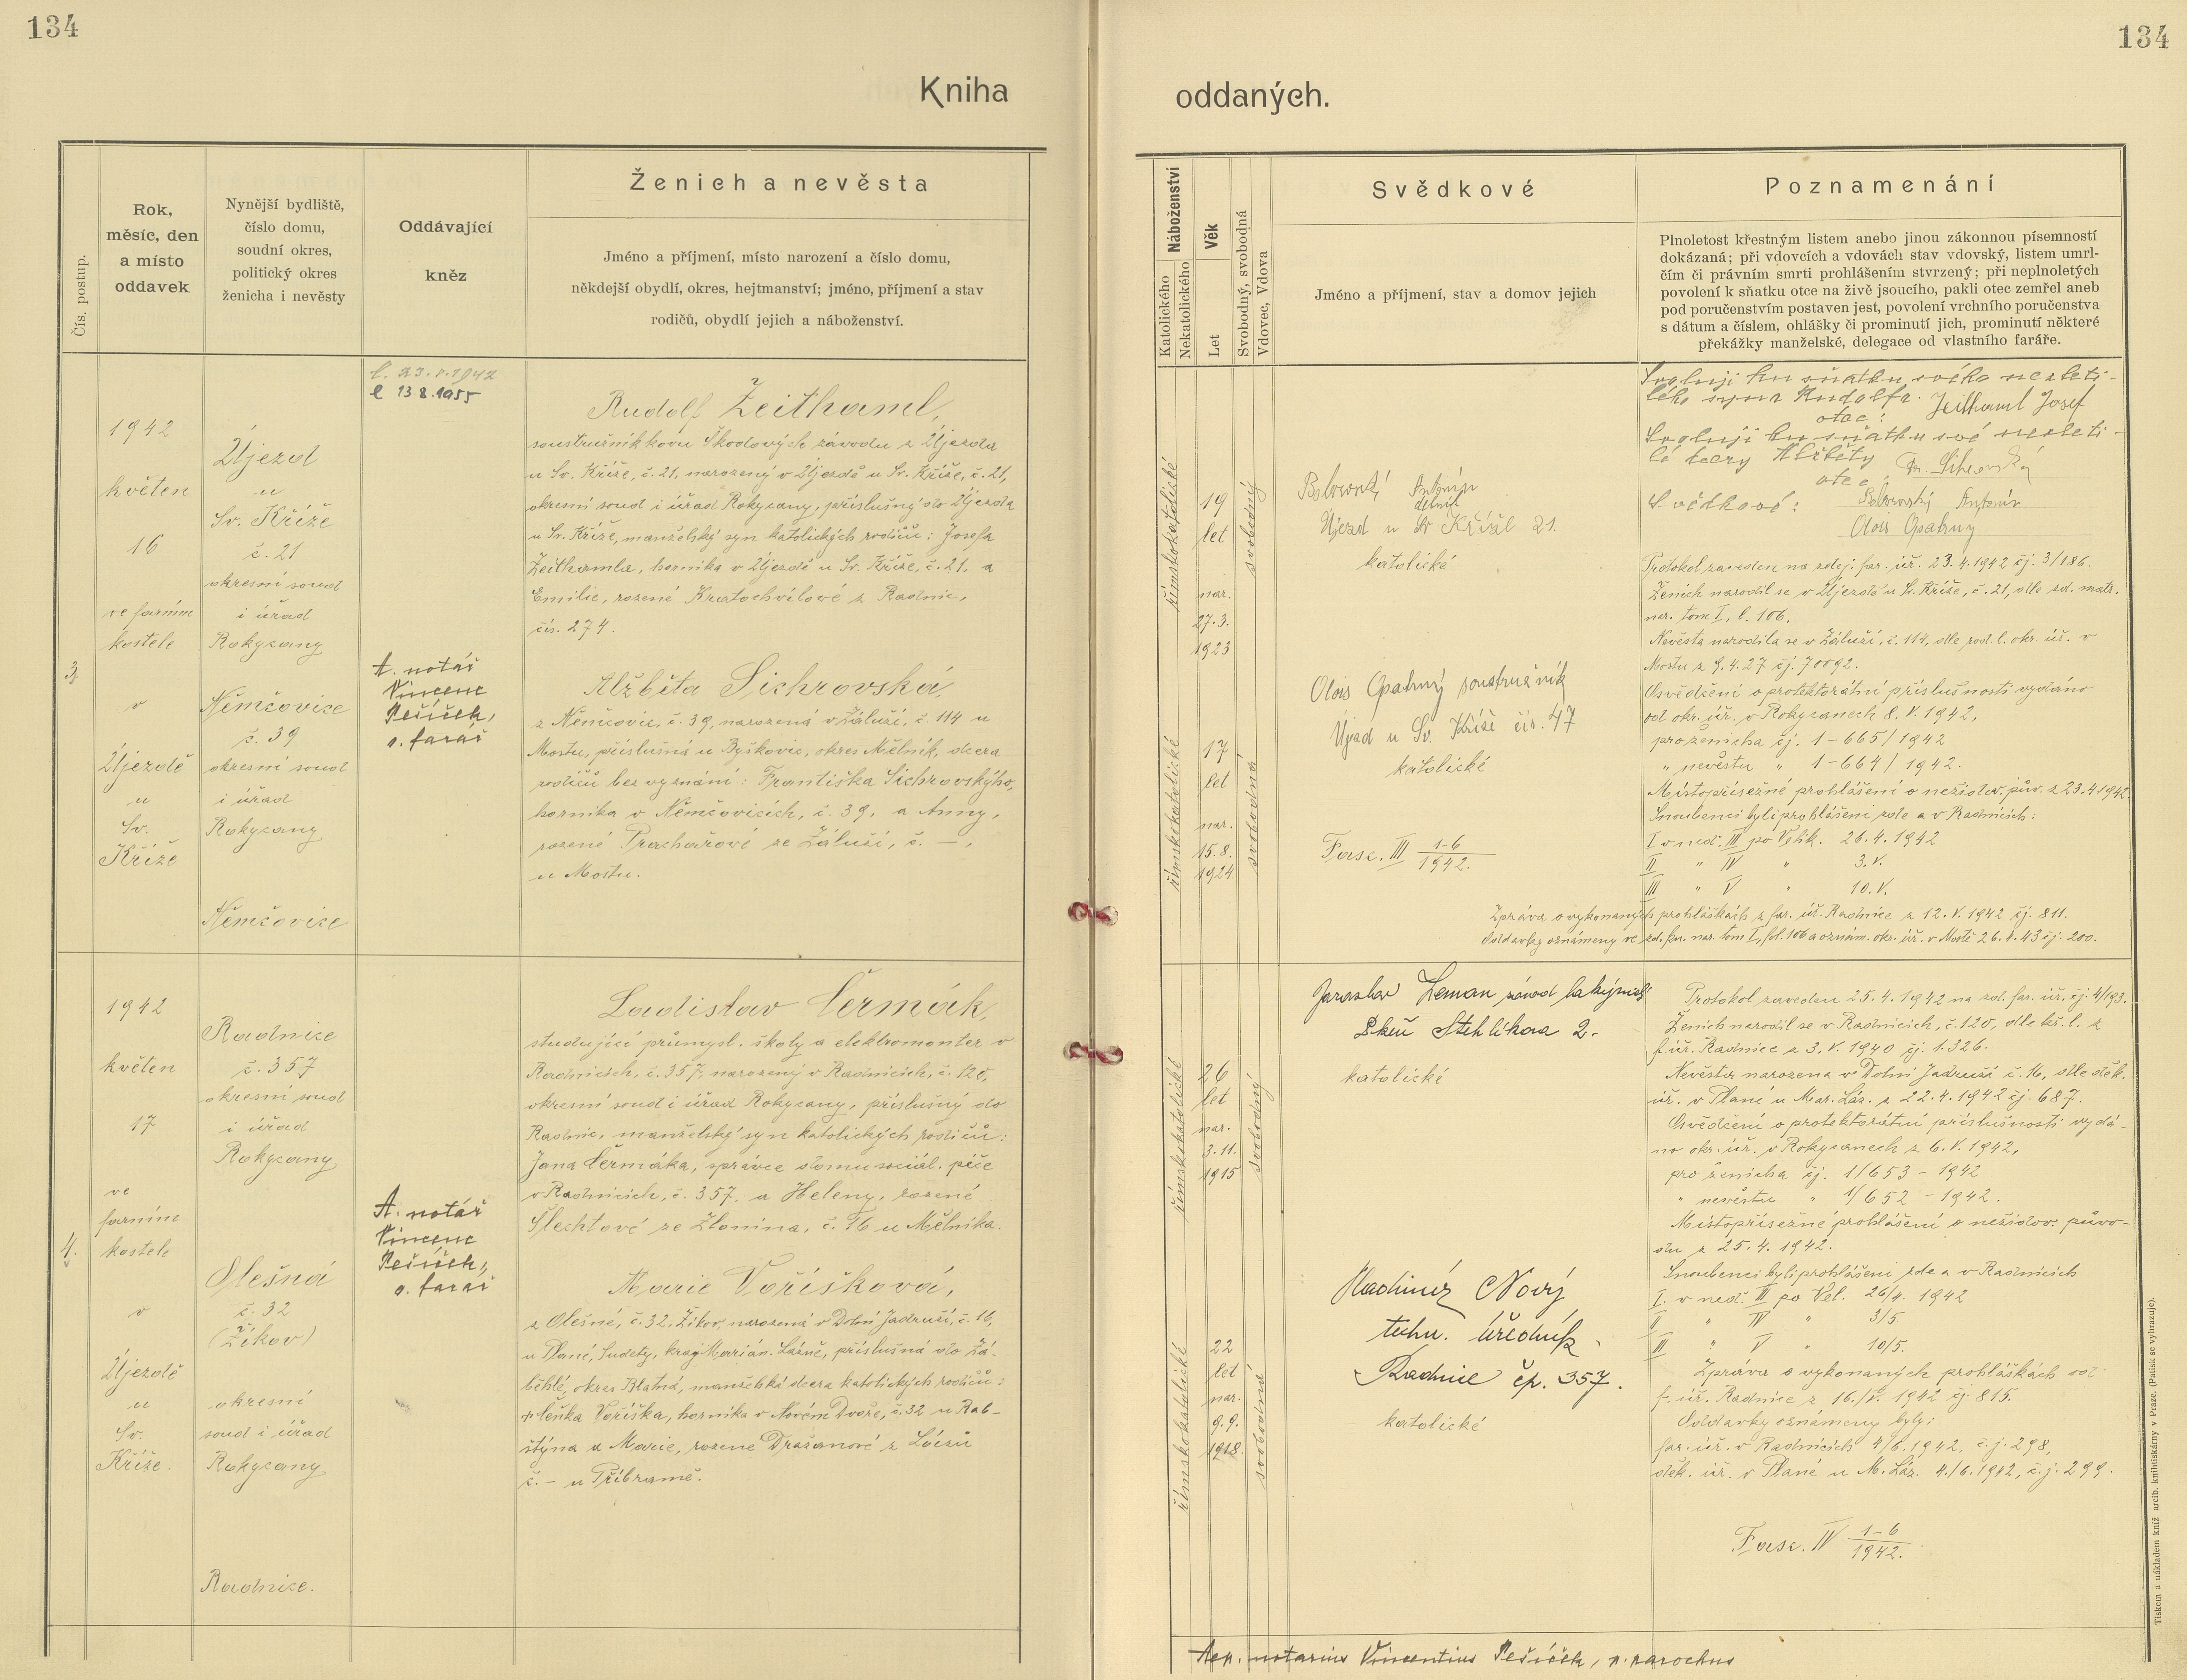 134
134
Kniha
oddaných.
Čís. postup.
Rok,
měsíc, den
a místo
oddavek
Nynější bydliště,
číslo domu,
soudní okres,
politický okres
ženicha i nevěsty
Oddávající
kněz
Ženich a nevěsta
Jméno a příjmení, místo narození a číslo domu,
někdejší obydlí, okres, hejtmanství; jméno, příjmení a stav
rodičů, obydlí jejich a náboženství.
Náboženství
Katolického
Nekatolického
Věk
Let
Svobodný, svobodná
Vdovec, Vdova
Svědkové
Jméno a příjmení, stav a domov jejich
Poznamenání
Plnoletost křestným listem anebo jinou zákonnou písemností
dokázaná; při vdovcích a vdovách stav vdovský, listem umrl-
čím či právním smrti prohlášením stvrzený; při neplnoletých
povolení k sňatku otce na živě jsoucího, pakli otec zemřel aneb
pod poručenstvím postaven jest, povolení vrchního poručenstva
s dátum a číslem, ohlášky či prominutí jich, prominutí některé
překážky manželské, delegace od vlastního faráře.
3.
1942
květen
16
ve farním
kostele
v
Újezdě
u
Sv.
Kříže
Újezd
u
Sv. Kříže
č. 21
okresní soud
i úřad
Rokycany
Němčovice
č. 39
okresní soud
i úřad
Rokycany
Němčovice
l. 23.5.1942
l 13.8.1955
A. notář
Vincenc
Pešíček,
p. farář
Rudolf Zeithaml,
soustružník kovu Škodových závodů z Újezda
u Sv. Kříže, č. 21, narozený v Újezdě u Sv. Kříže, č. 21,
okresní soud i úřad Rokycany, příslušný do Újezda
u Sv. Kříže, manželský syn katolických rodičů: Josefa
Zeithamla, horníka v Újezdě u Sv. Kříže, č. 21, a
Emilie, rozené Kratochvílové z Radnic,
čís. 274.
Alžběta Sichrovská,
z Němčovic, č. 39, narozená v Záluží, č. 114 u
Mostu, příslušná u Byškovic, okres Mělník, dcera
rodičů bez vyznání: Františka Sichrovského,
horníka v Němčovicích, č. 39, a Anny,
rozené Prachařové ze Záluží, č. —,
u Mostu.
římskokatolické
19
let
nar.
27.3.
1923
svobodný
římskokatolické
17
let
nar.
15.8.
1924
svobodná
Antonín
dělník
Újezd u Sv Kříže 21.
katolické
Alois Opatrný soustružník
Újezd u Sv. Kříže čís. 47
katolické
Fasc. III 1-6
1942.
Svoluji ku sňatku svého nezleti-
lého syna Rudolfa. Zeithaml Josef
otec:
Svoluji ku sňatku své nezleti-
lé dcery Alžběty Fr. Sichrovský
otec:
Svědkové: Antonín
Alois Opatrný
Protokol zaveden na zdej. far. úř. 23.4.1942 čj. 3/186.
Ženich narodil se v Újezdě u Sv. Kříže, č. 21, dle zd. matr.
nar. tom I, l. 106.
Nevěsta narodila se v Záluží, č. 114, dle rod. l. okr. úř. v
Mostu z 9.4.27 čj. 70092.
Osvědčení o protektorátní příslušnosti vydáno
od okr. úř. v Rokycanech 8. V. 1942,
pro ženicha čj. 1-665/1942
„ nevěstu „ 1-664/1942.
Místopřísežné prohlášení o nežidov. pův. z 23.4.1942.
Snoubenci byli prohlášeni zde a v Radnicích:
I v ned. III po Velik. 26.4.1942
II „ IV „ 3.V.
III „ V „ 10.V.
Zpráva o vykonaných prohláškách z far. úř. Radnice z 12.V.1942 čj. 811.
Oddavky oznámeny ve zd. far. nar. tom I, fol. 106 a oznám. okr. úř. v Mostě 26.V.43 čj. 200.
4.
1942
květen
17
ve
farním
kostele
v
Újezdě
u
Sv.
Kříže.
Radnice
č. 357
okresní soud
i úřad
Rokycany
Olešná
č. 32
(Žikov)
okresní
soud i úřad
Rokycany
Radnice.
A. notář
Vincenc
Pešíček,
p. farář
Ladislav Čermák,
studující průmysl. školy a elektromontér v
Radnicích, č. 357, narozený v Radnicích, č. 120,
okresní soud i úřad Rokycany, příslušný do
Radnic, manželský syn katolických rodičů:
Jana Čermáka, správce domu sociál. péče
v Radnicích, č. 357. a Heleny, rozené
Šlechtové ze Zlonína, č. 16 u Mělníka.
Marie Voříšková,
z Olešné, č. 32, Žikov, narozená v Dolní Jadruži, č. 16,
u Plané, Sudety, kraj Marián. Lázně, příslušná do Zá-
běhlé, okres Blatná, manželská dcera katolických rodičů:
Voříška, horníka v Novém Dvoře, č. 32 u Rab-
štýna a Marie, rozené Dražanové z Láziů
č. — u Příbramě.
římskokatolické
26
let
nar.
3.11.
1915
svobodný
římskokatolické
22
let
nar.
9.9.
1918
svobodná
Jaroslav Zeman
Plzeň Stehlíkova 2.
katolické
Vladimír Nový
techn. úředník
Radnice čp. 357.
katolické
Protokol zaveden 25.4.1942 na zd. far. úř. čj. 4/193.
Ženich narodil se v Radnicích, č. 120, dle kř. l. z
f. úř. Radnice z 3.V.1940 čj. 1.326.
Nevěsta narozena v Dolní Jadruži č. 16, dle děk.
úř. v Plané u Mar. Láz. z 22.4.1942 čj. 687.
Osvědčení o protektorátní příslušnosti vydá-
no okr. úř. v Rokycanech z 6.V.1942,
pro ženicha čj. 1/653 - 1942
„ nevěstu „ 1/652 - 1942.
Místopřísežné prohlášení o nežidov. půvo-
du z 25.4.1942.
Snoubenci byli prohlášeni zde a v Radnicích
I. v ned. III po Vel. 26/4. 1942
II „ IV „ 3/5.
III „ V „ 10/5.
Zpráva o vykonaných prohláškách od
f. úř. Radnice z 16./V. 1942 čj. 815.
Oddavky oznámeny byly:
far. úř. v Radnicích 4/6.1942, č.j. 298,
děk. úř. v Plané u M. Láz. 4./6.1942, č.j. 299.
Fasc. IV 1-6
1942.
Aep. notarius Vincentius Pešíček, p. parochus
Tiskem a nákladem kníž. arcib. knihtiskárny v Praze. (Patisk se vyhrazuje).